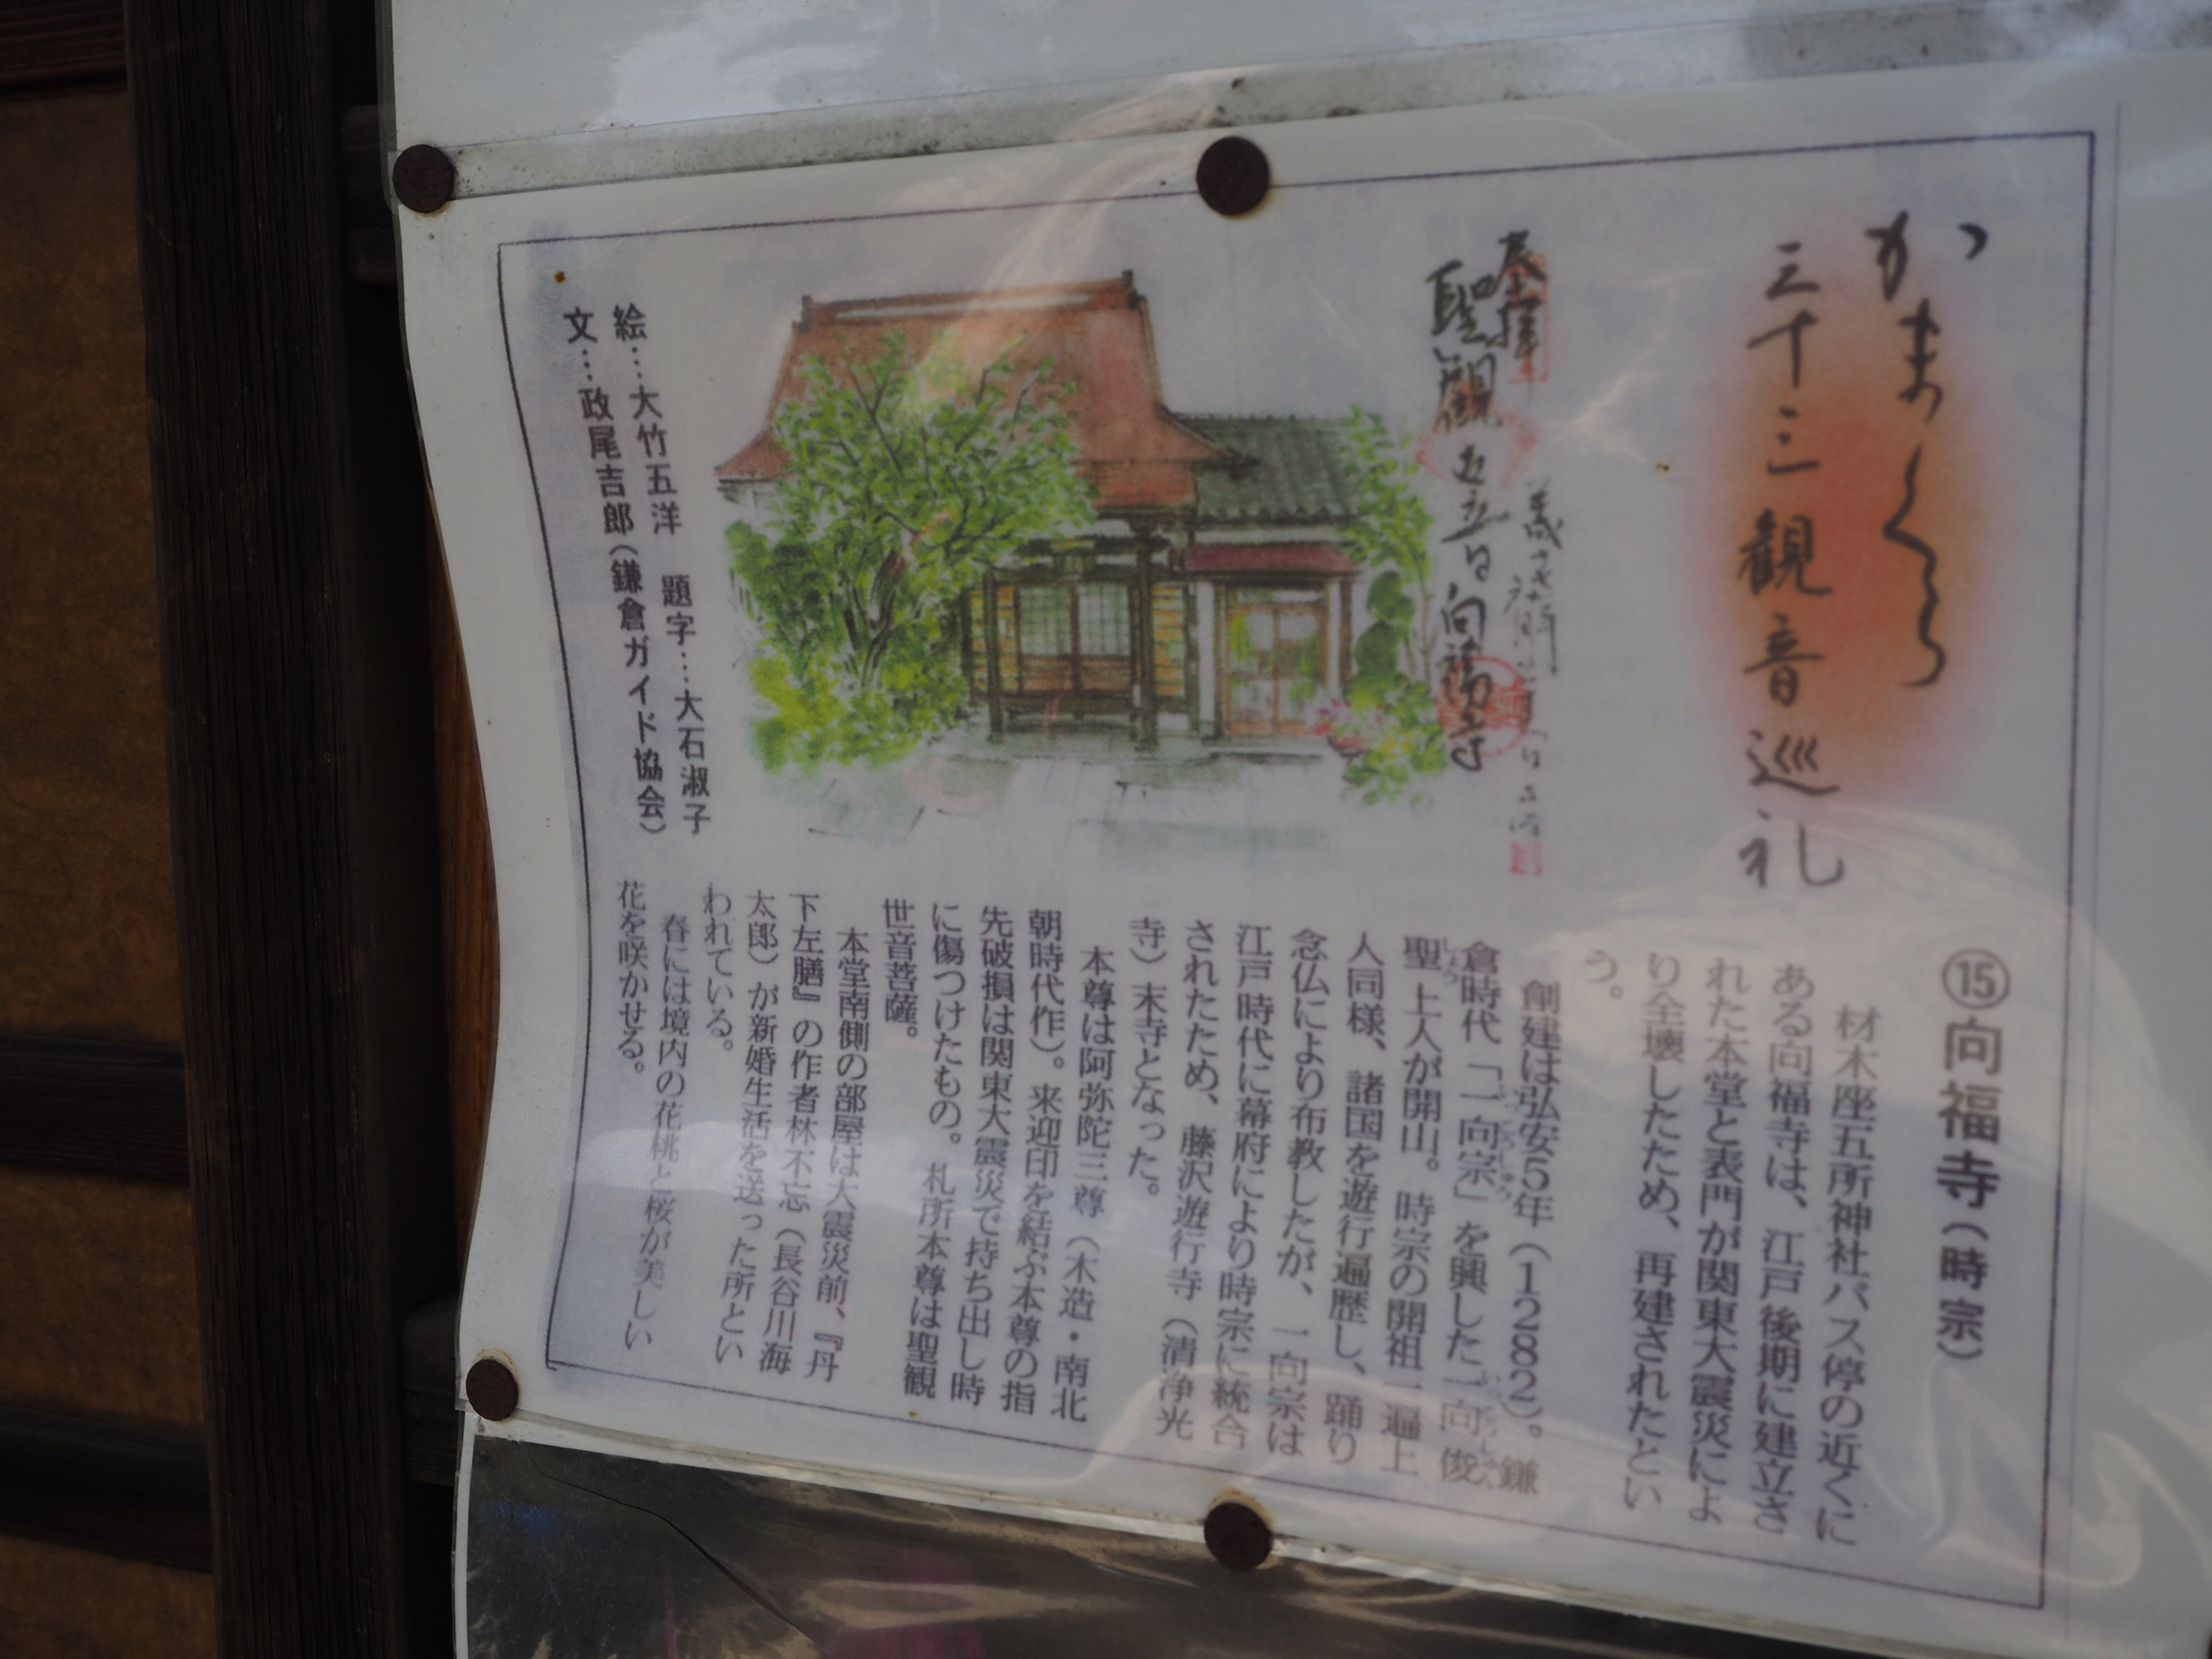 かまくら
三十三観音巡礼
⑮向福寺(時宗)
材木座五所神社バス停の近くに
ある向福寺は、江戸後期に建立さ
れた本堂と表門が関東大震災によ
り全壊したため、再建されたとい
う。
創建は弘安5年(1282)。鎌
倉時代「一向宗」を興した一向俊
聖上人が開山。時宗の開祖一遍上
人同様、諸国を遊行遍歴し、踊り
念仏により布教したが、一向宗は
江戸時代に幕府により時宗に統合
されたため、藤沢遊行寺(清浄光
寺)末寺となった。
本尊は阿弥陀三尊(木造・南北
朝時代作)。来迎印を結ぶ本尊の指
先破損は関東大震災で持ち出し時
に傷つけたもの。札所本尊は聖観
世音菩薩。
本堂南側の部屋は大震災前、『丹
下左膳』の作者林不忘(長谷川海
太郎)が新婚生活を送った所とい
われている。
春には境内の花桃と桜が美しい
花を咲かせる。
奉拝
聖観
向福寺
絵…大竹五洋 題字…大石淑子
文…政尾吉郎(鎌倉ガイド協会)